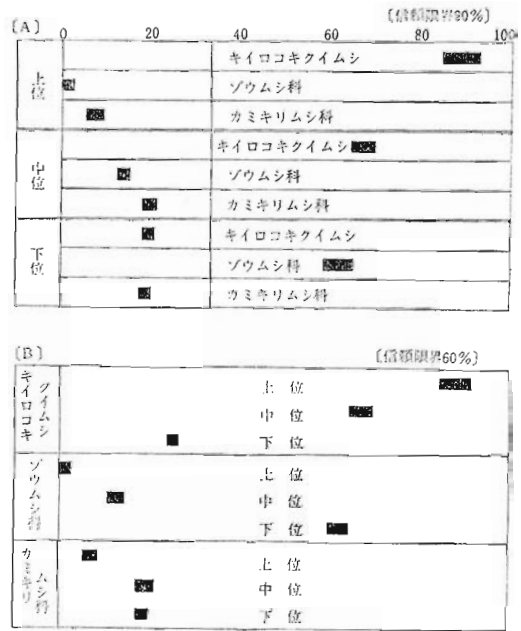 〔A〕
〔信頼限界90%〕
0 20 40 60 80 100
上位
キイロコキクイムシ
ゾウムシ科
カミキリムシ科
中位
キイロコキクイムシ
ゾウムシ科
カミキリムシ科
下位
キイロコキクイムシ
ゾウムシ科
カミキリムシ科
〔B〕
〔信頼限界60%〕
キイロコキクイムシ
上位
中位
下位
ゾウムシ科
上位
中位
下位
カミキリムシ科
上位
中位
下位